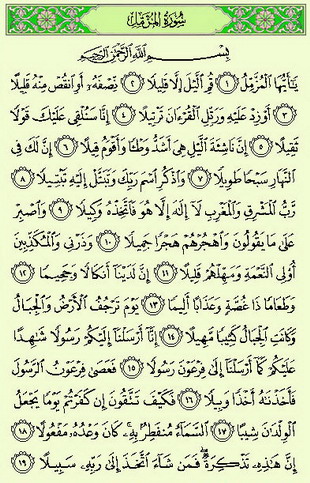 سُورَةُ المُزَّمِّل
بِسْمِ ٱللَّهِ ٱلرَّحْمَٰنِ ٱلرَّحِيمِ
يَٰٓأَيُّهَا ٱلْمُزَّمِّلُ ١ قُمِ ٱلَّيْلَ إِلَّا قَلِيلًا ٢ نِّصْفَهُۥٓ أَوِ ٱنقُصْ مِنْهُ قَلِيلًا
٣ أَوْ زِدْ عَلَيْهِ وَرَتِّلِ ٱلْقُرْءَانَ تَرْتِيلًا ٤ إِنَّا سَنُلْقِى عَلَيْكَ قَوْلًا
ثَقِيلًا ٥ إِنَّ نَاشِئَةَ ٱلَّيْلِ هِىَ أَشَدُّ وَطْـًٔا وَأَقْوَمُ قِيلًا ٦ إِنَّ لَكَ فِى
ٱلنَّهَارِ سَبْحًا طَوِيلًا ٧ وَٱذْكُرِ ٱسْمَ رَبِّكَ وَتَبَتَّلْ إِلَيْهِ تَبْتِيلًا ٨
رَّبُّ ٱلْمَشْرِقِ وَٱلْمَغْرِبِ لَآ إِلَٰهَ إِلَّا هُوَ فَٱتَّخِذْهُ وَكِيلًا ٩ وَٱصْبِرْ
عَلَىٰ مَا يَقُولُونَ وَٱهْجُرْهُمْ هَجْرًا جَمِيلًا ١٠ وَذَرْنِى وَٱلْمُكَذِّبِينَ
أُو۟لِى ٱلنَّعْمَةِ وَمَهِّلْهُمْ قَلِيلًا ١١ إِنَّ لَدَيْنَآ أَنكَالًا وَجَحِيمًا ١٢
وَطَعَامًا ذَا غُصَّةٍ وَعَذَابًا أَلِيمًا ١٣ يَوْمَ تَرْجُفُ ٱلْأَرْضُ وَٱلْجِبَالُ
وَكَانَتِ ٱلْجِبَالُ كَثِيبًا مَّهِيلًا ١٤ إِنَّآ أَرْسَلْنَآ إِلَيْكُمْ رَسُولًا شَٰهِدًا
عَلَيْكُمْ كَمَآ أَرْسَلْنَآ إِلَىٰ فِرْعَوْنَ رَسُولًا ١٥ فَعَصَىٰ فِرْعَوْنُ ٱلرَّسُولَ
فَأَخَذْنَٰهُ أَخْذًا وَبِيلًا ١٦ فَكَيْفَ تَتَّقُونَ إِن كَفَرْتُمْ يَوْمًا يَجْعَلُ
ٱلْوِلْدَٰنَ شِيبًا ١٧ ٱلسَّمَآءُ مُنفَطِرٌۢ بِهِۦ كَانَ وَعْدُهُۥ مَفْعُولًا ١٨
إِنَّ هَٰذِهِۦ تَذْكِرَةٌ فَمَن شَآءَ ٱتَّخَذَ إِلَىٰ رَبِّهِۦ سَبِيلًا ١٩